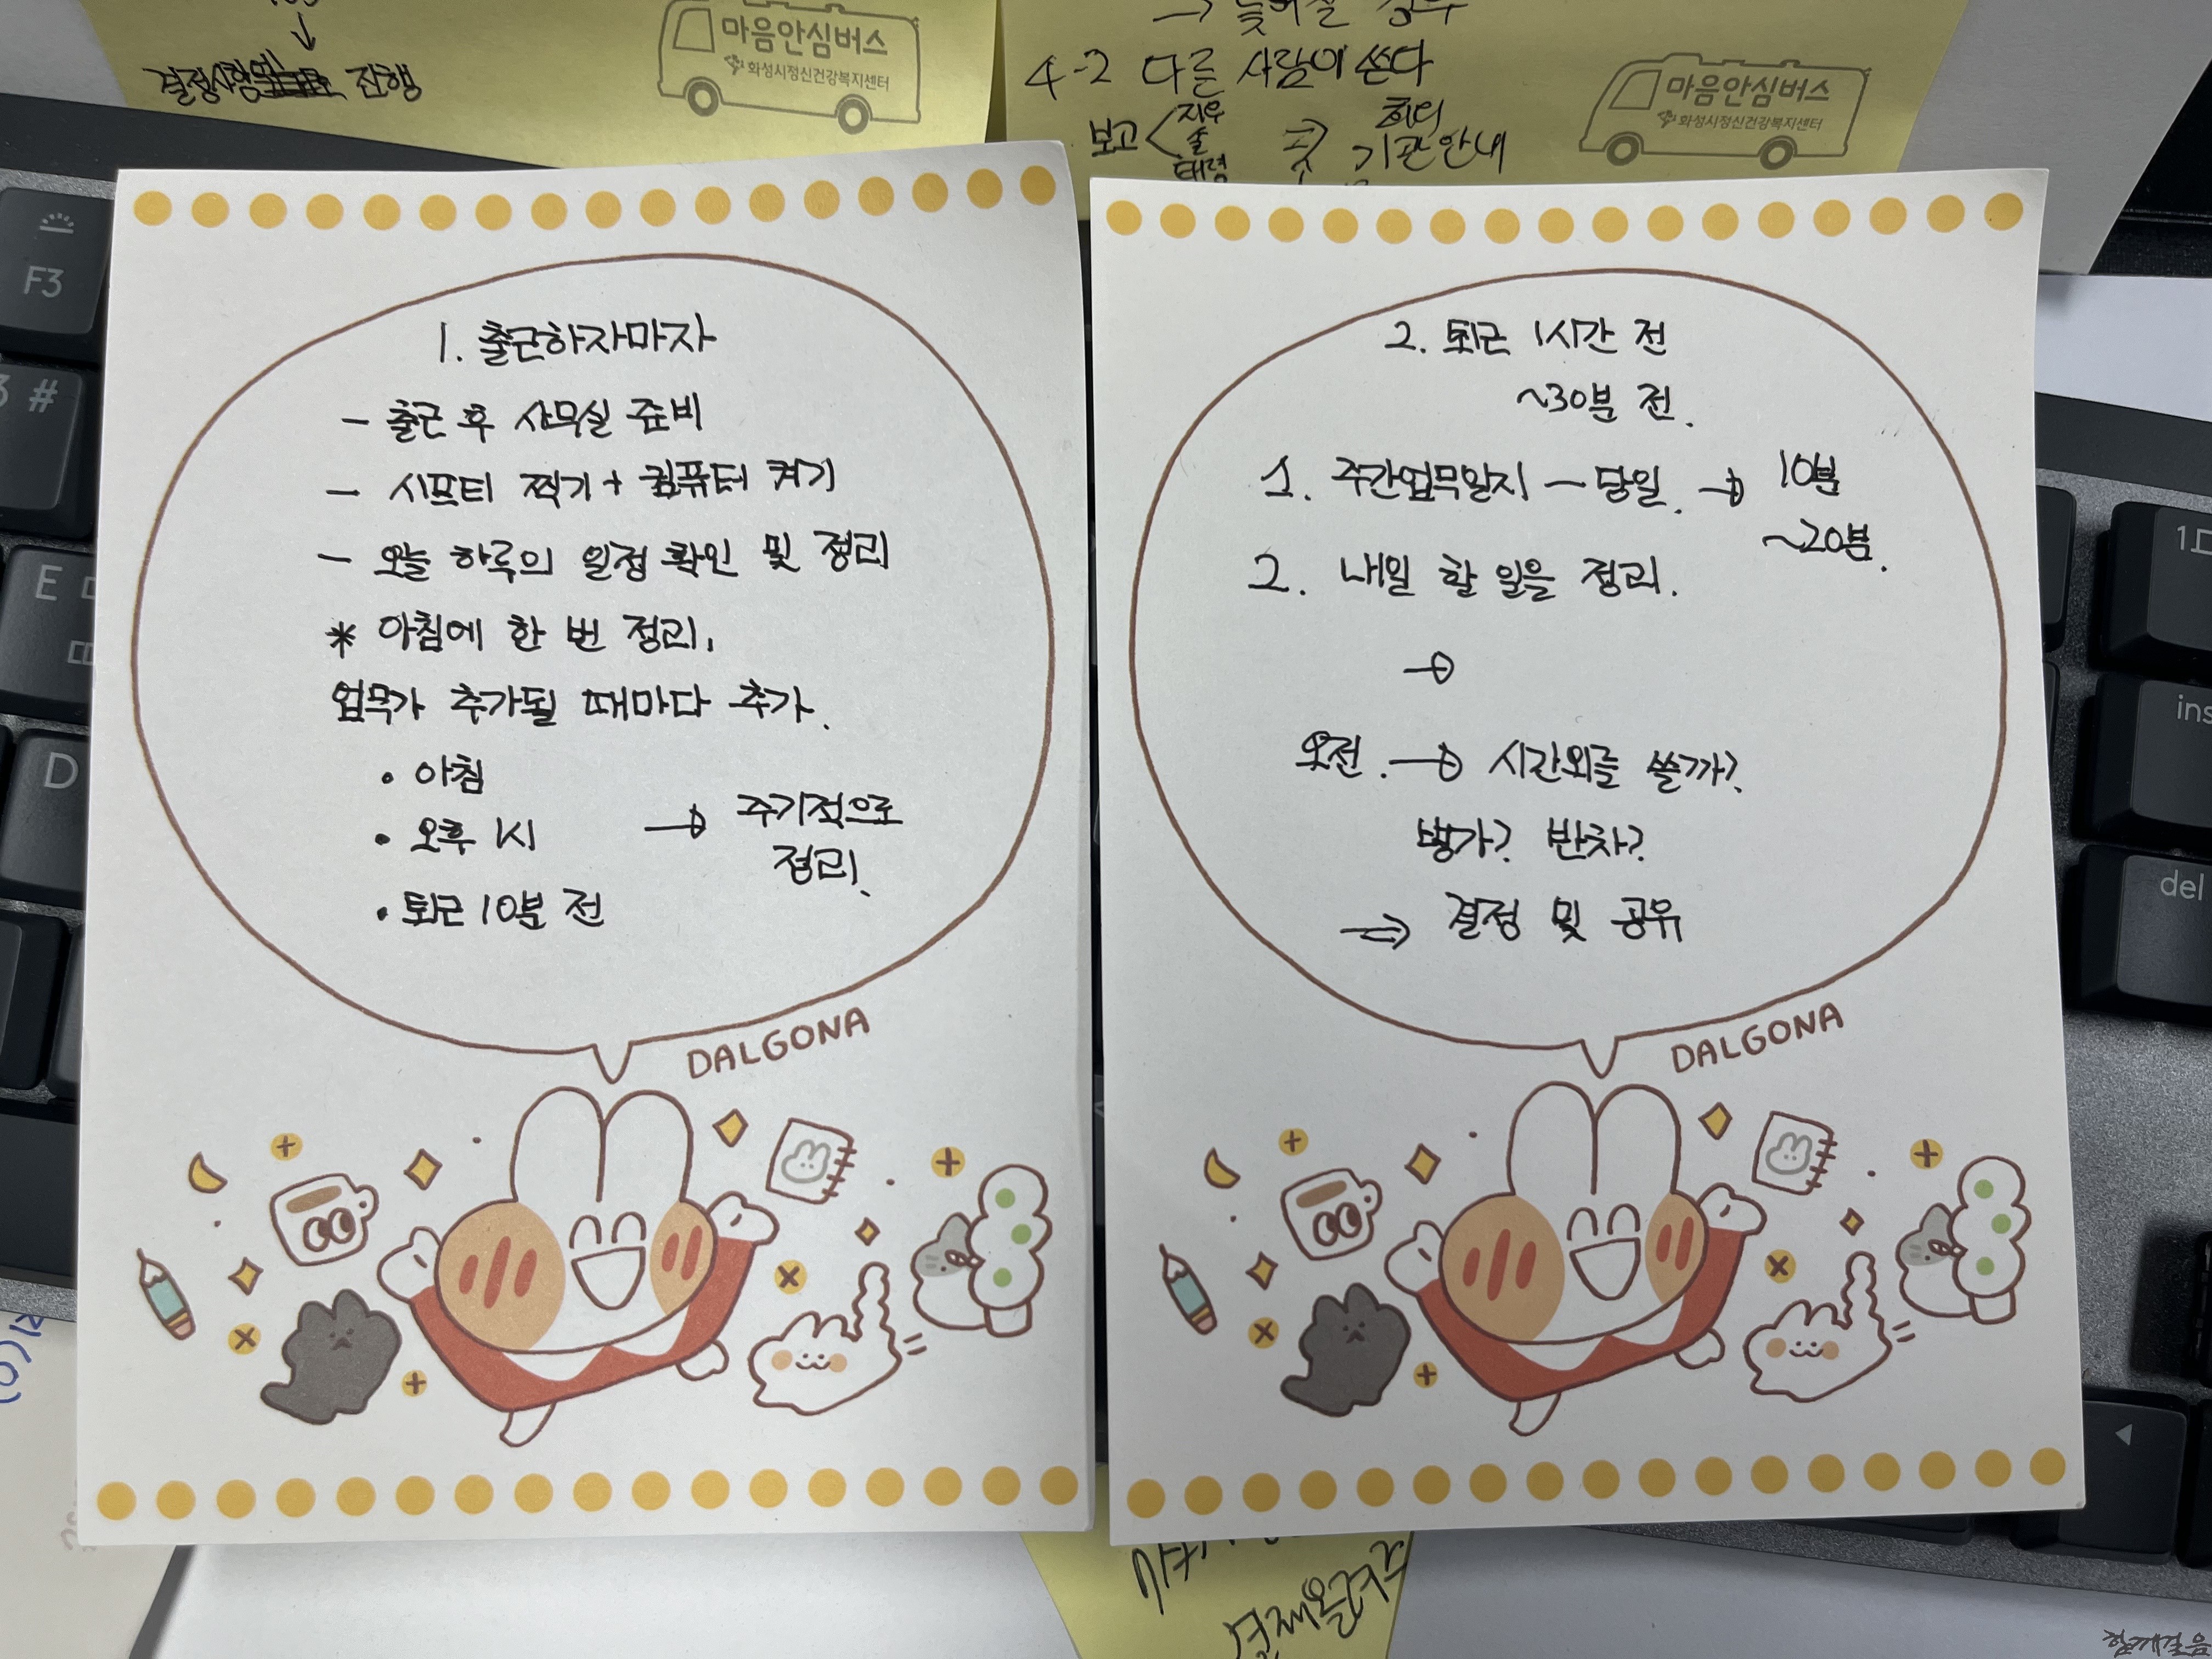 결정사항 진행
마음안심버스
화성시정신건강복지센터
4-2 다른 사람이 쓴다
보고 < 지우
솔
태령
⇒ 기관안내
마음안심버스
화성시정신건강복지센터
F3
3 #
E
D
1. 출근하자마자
- 출근 후 사무실 준비
- 시프티 찍기 + 컴퓨터 켜기
- 오늘 하루의 일정 확인 및 정리
* 아침에 한 번 정리,
업무가 추가될 때마다 추가.
• 아침
• 오후 1시 → 주기적으로
정리.
• 퇴근 10분 전
DALGONA
2. 퇴근 1시간 전
~30분 전.
1. 주간업무일지 - 당일. → 10분
~20분.
2. 내일 할 일을 정리.
→
오전. → 시간외를 쓸까?
병가? 반차?
⇒ 결정 및 공유
DALGONA
ins
del
함께걸음